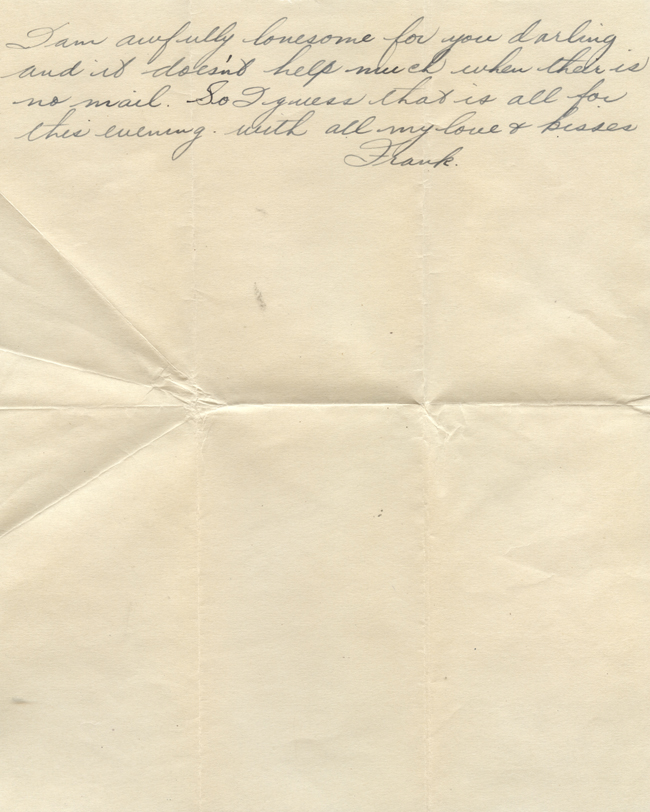 I am awfully lonesome for you darling
and it doesn't help much when ther is
no mail. So I guess that is all for
this evening. with all my love & kisses
Frank.